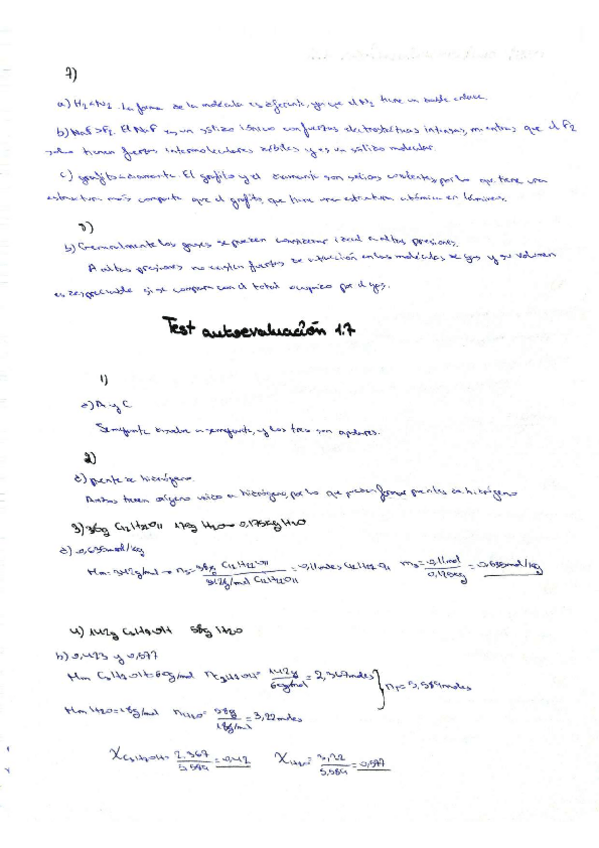 7)
a) H2<N2. La forma de la molécula es diferente, ya que el N2 tiene un doble enlace.
b) NaF>F2. El NaF es un sólido iónico con fuerzas electrostáticas intensas, mientras que el F2
solo tienen fuerzas intermoleculares débiles y es un sólido molecular.
c) grafito<diamante. El grafito y el diamante son sólidos covalentes, por lo que tiene una
estructura más compacta que el grafito, que tiene una estructura atómica en láminas.
b) Generalmente los gases se pueden considerar ideal a altas presiones.
A altas presiones no existen fuerzas de atracción en las moléculas de gas y su volumen
es despreciable si se compara con el total ocupado por el gas.
Test autoevaluación 1.7
1)
A y C
Semejante disuelve a semejante, y los tres son apolares.
2)
c) puente de hidrógeno.
Ambas tienen oxígeno unido a hidrógeno, por lo que pueden formar puentes de hidrógeno
3) 36g C12H22O11 175g H2O → 0,175kg H2O
0,635mol/kg
Mm=342g/mol → ns= 36g C12H22O11 / 342g/mol C12H22O11 = 0,11moles C12H22O11 m= 0,11mol / 0,175kg =
4) 142g C3H7OH 58g H2O
b) 0,423 y 0,577
Mm C3H7OH=60g/mol nC3H7OH= 142g / 60g/mol = 2,367moles
nT= 5,589moles
Mm H2O=18g/mol nH2O= 58g / 18g/mol = 3,22moles
XC3H7OH= 2,367 / 5,589 = 0,42 XH2O= 3,22 / 5,589 = 0,577